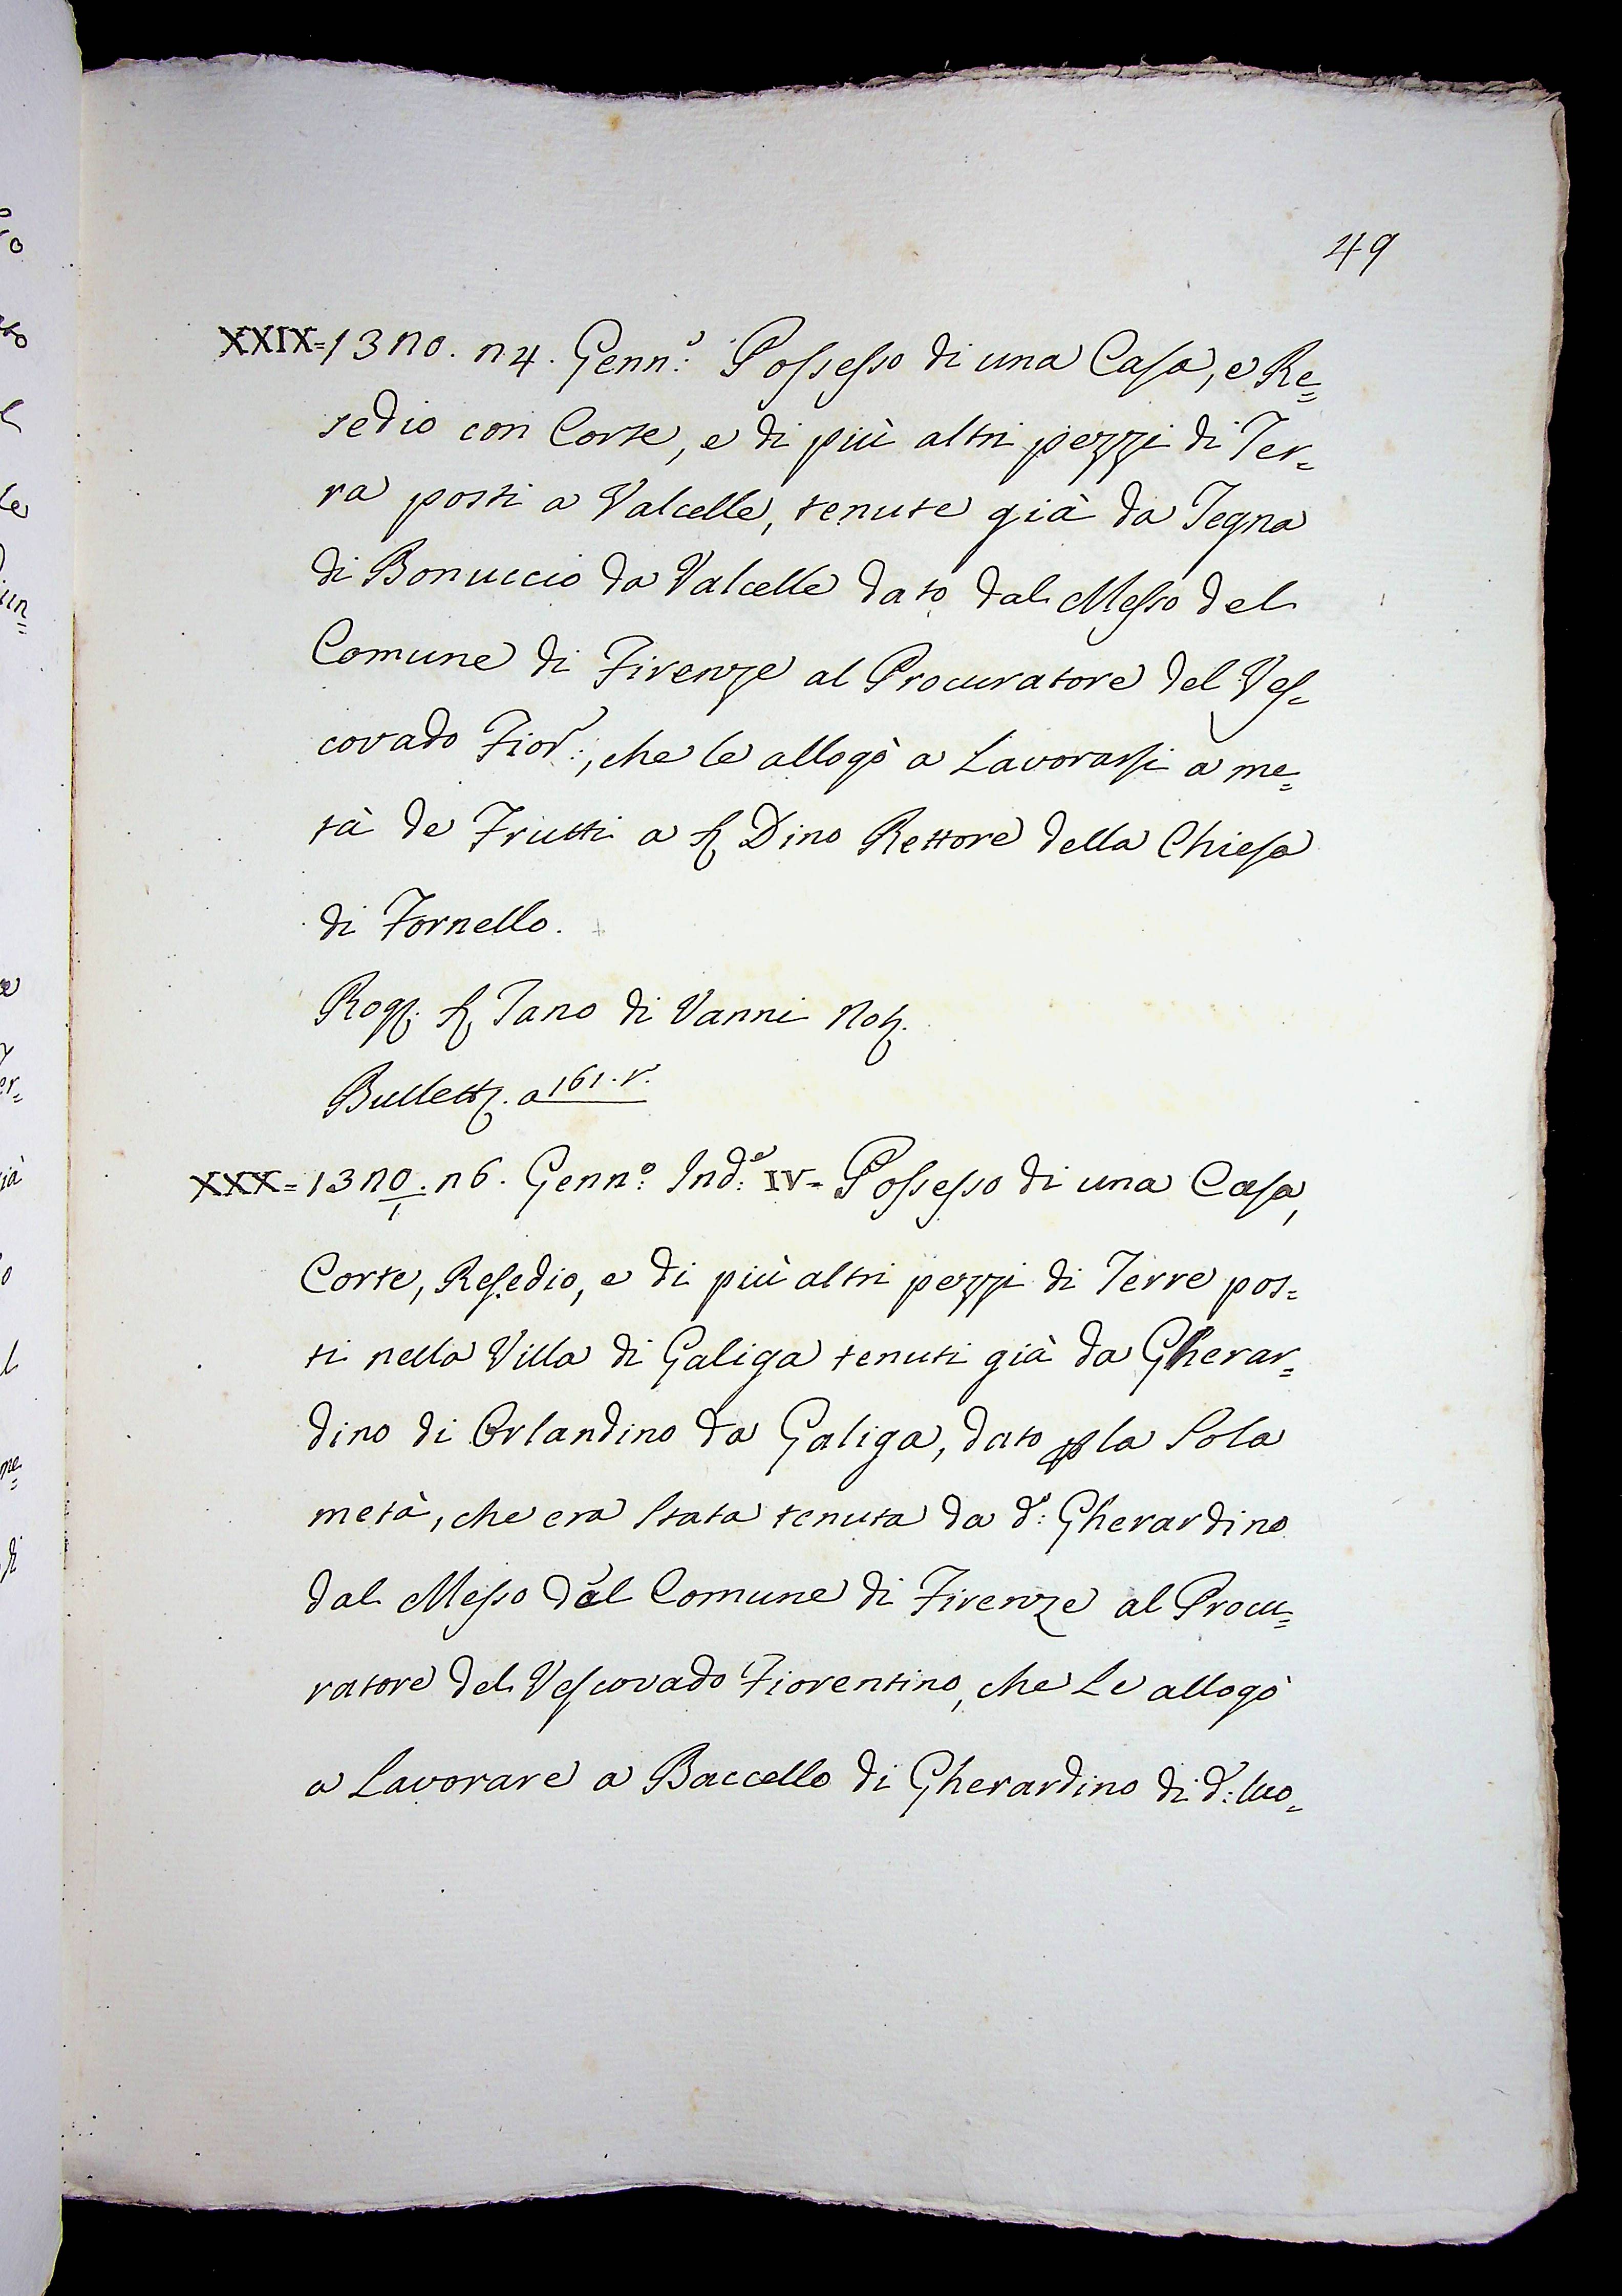 49
XXIX=1320. 24. Genn.º Possesso di una Casa, e Re=
sedio con Corte, e di più altri pezzi di Ter=
ra posti a Valcelle, tenute già da Tegna
di Bonuccio da Valcelle dato dal Messo del
Comune di Firenze al Procuratore del Ves=
covado Fior:, che le allogò a Lavorarsi a me=
tà de Frutti a S. Dino Rettore della Chiesa
di Fornello.
Rog. S. Tano di Vanni Not.
Bullett. a 161. r.
XXX=1320/1. 26. Genn.º Ind.e IV= Possesso di una Casa,
Corte, Resedio, e di più altri pezzi di Terre pos=
ti nella Villa di Galiga tenuti già da Gherar=
dino di Orlandino da Galiga, dato p la Sola
metà, che era Stata tenuta da d.º Gherardino
dal Messo del Comune di Firenze al Procu=
ratore del Vescovado Fiorentino, che Le allogò
a Lavorare a Baccello di Gherardino di d.º luo=